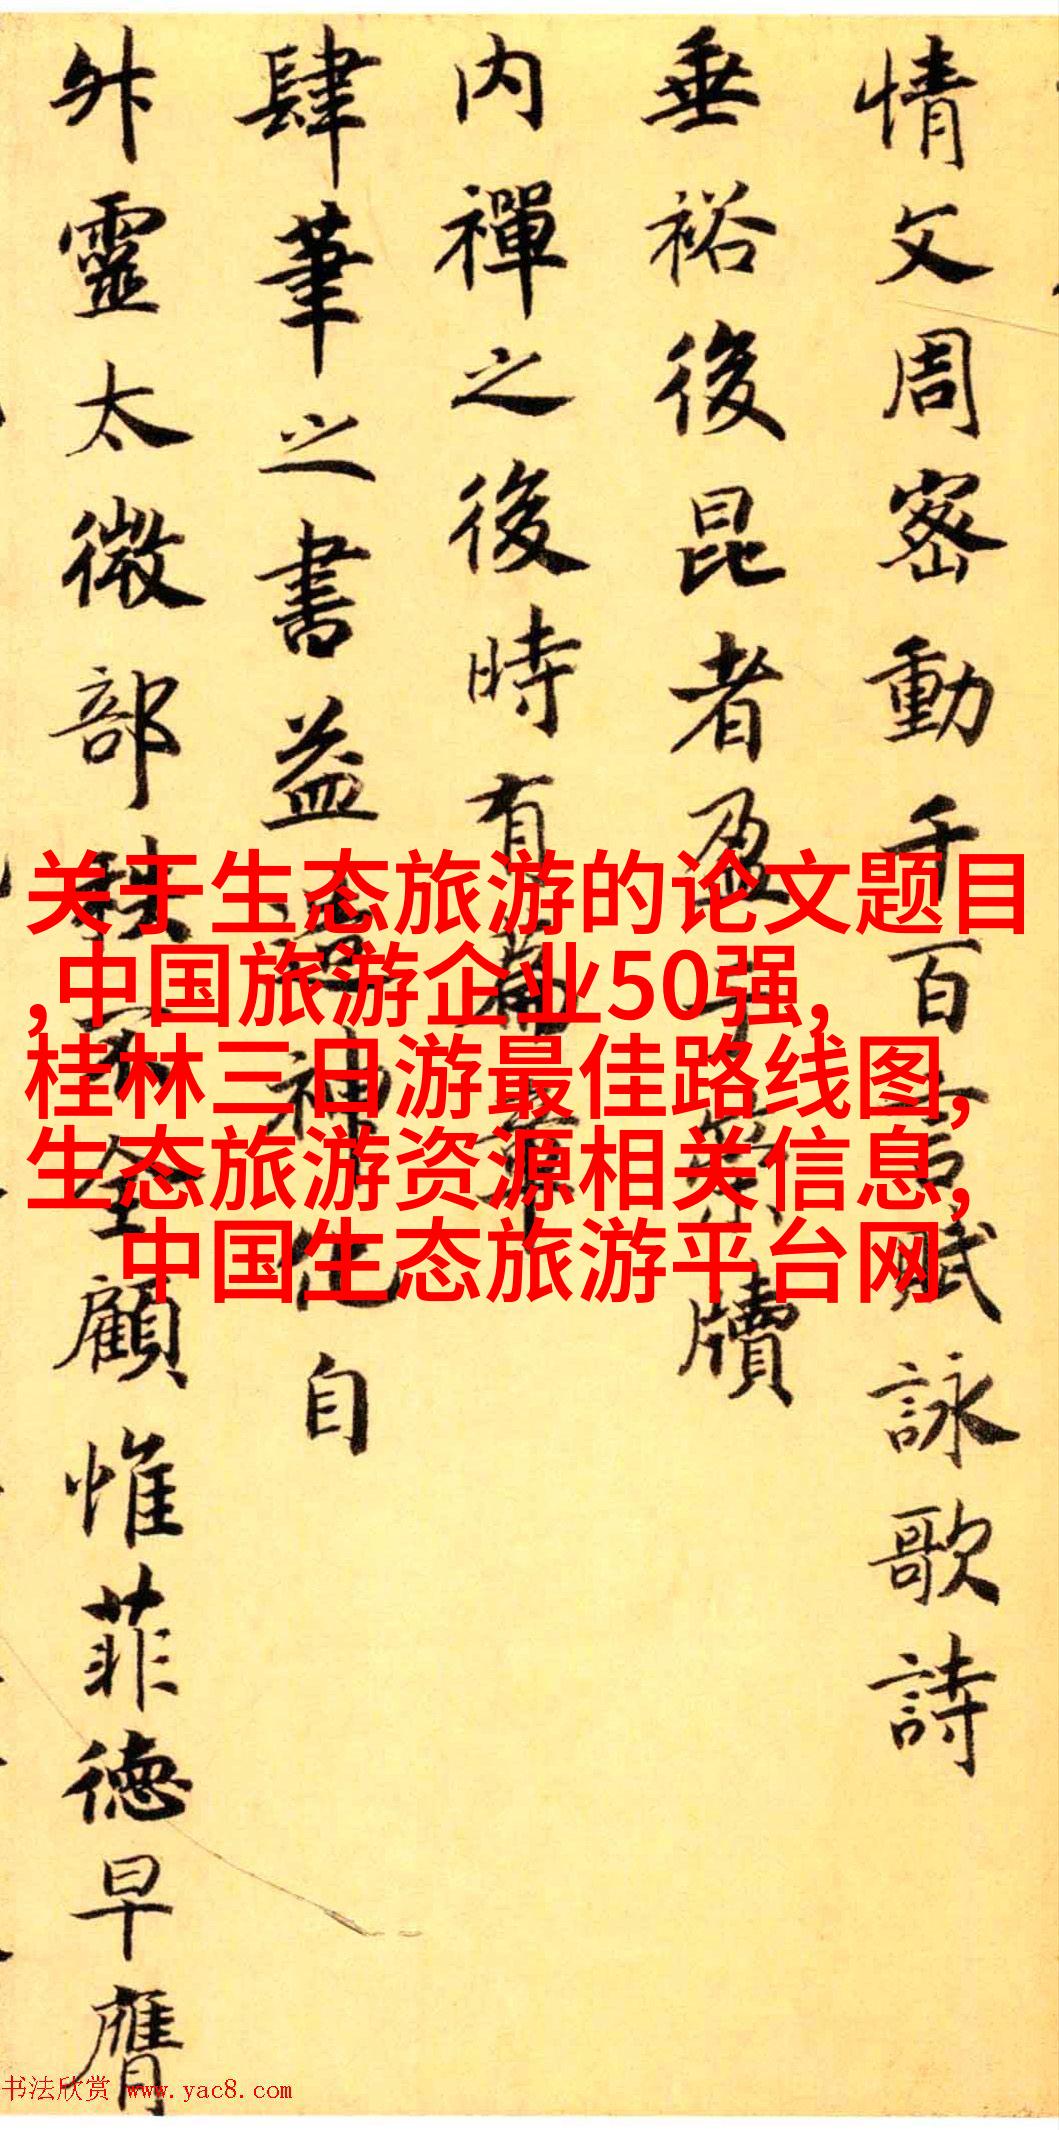 情文周密動千百言賦詠歌詩
垂裕後昆者盈
牘
内禪之後時有篇章
肆筆之書益
神化自
外靈太微部
顧惟菲德早膺
关于生态旅游的论文题目
,中国旅游企业50强,
桂林三日游最佳路线图,
生态旅游资源相关信息,
中国生态旅游平台网
书法欣赏 www.yac8.com